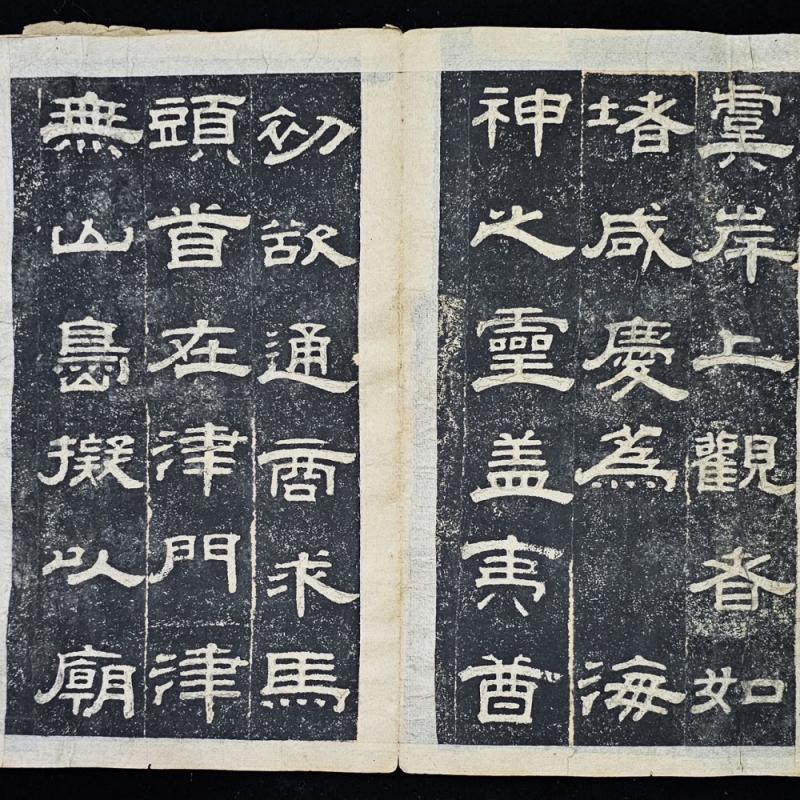 虞岸上觀者如
堵咸慶為海
神之靈盖夷酋
初欲通商求馬
頭首在津門津
無山島擬以廟